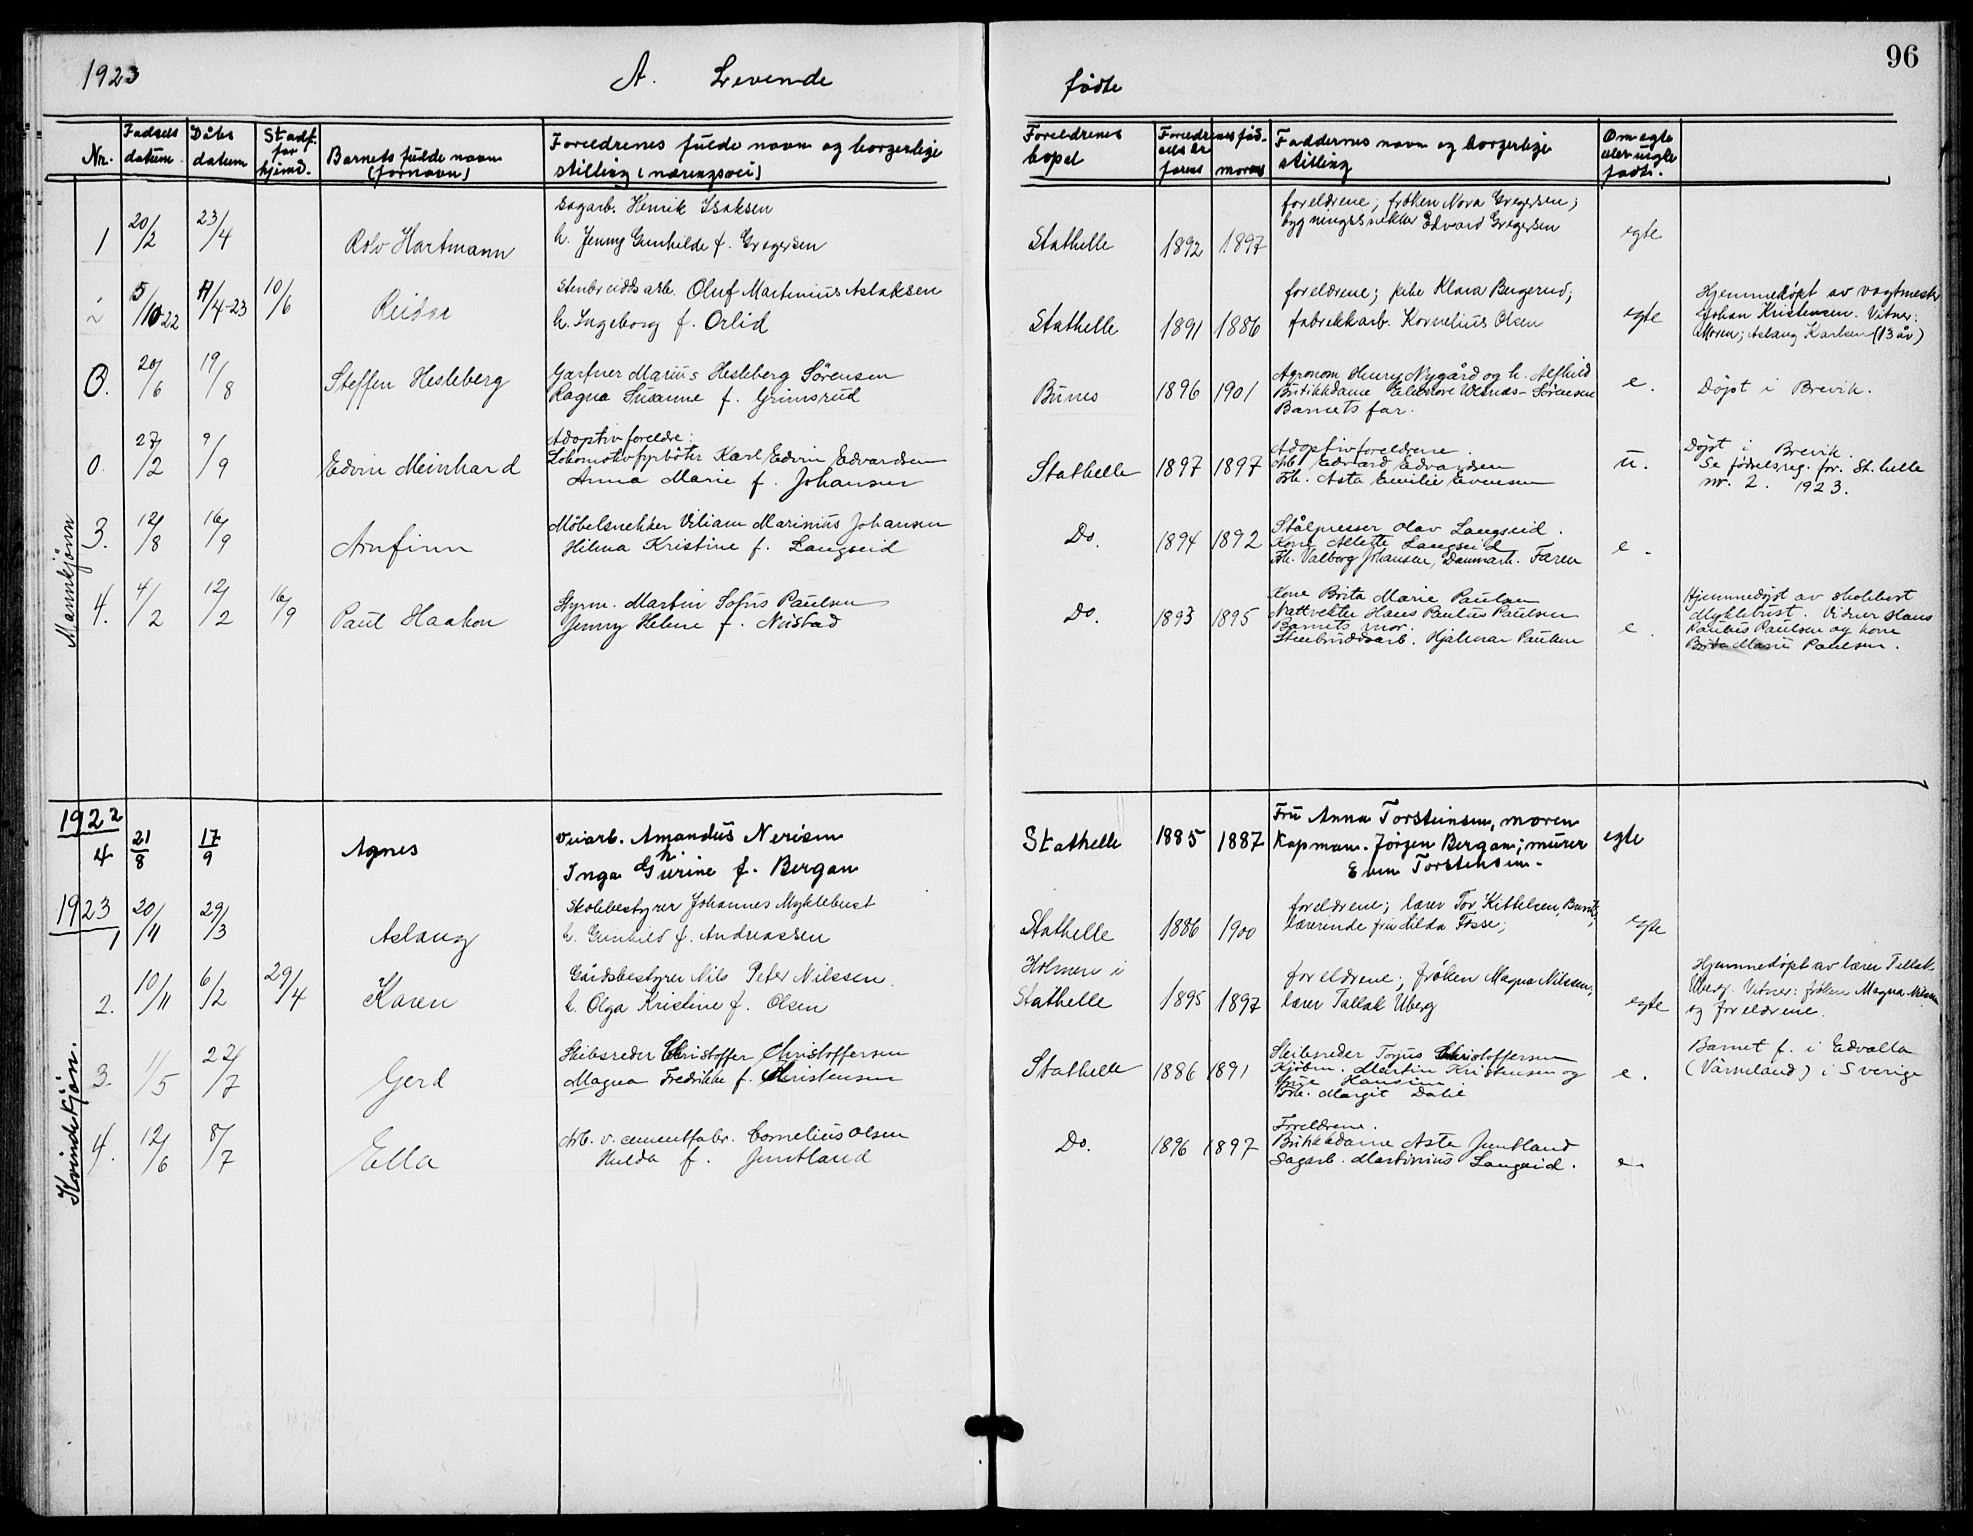 96
1923 A. Levende fødte
Nr. Fødsels datum. Dåbs datum Stadf. for hjemd. Barnets fulde navn (fornavn) Foreldrenes fulde navn og borgerlige stilling (næringsvei) Foreldrenes bopel Foreldrenes fødselsår farens morens Faddernes navn og borgerlige stilling Om egte eller uegte født.
Mannkjønn
1 20/2 23/4 Rolv Hartmann
Sagarb. Henrik Isaksen
h. Jenny Gunhilde f. Gregersen
Stathelle 1892 1897
foreldrene; frøken Nora Gregersen;
bygningssnekker Edvard Gregersen
egte
2 5/10-22 /4-23 10/6 Reidar
Stenbruddsarb. Oluf Martinius Aslaksen
h. Ingeborg f. Orlid
Stathelle 1891 1886
foreldrene; pike Klara Bugerud;
fabrikkarb. Kornelius Olsen
egte
Hjemmedøpt av vagtmester
Johan Kristensen. Vitner:
Moren; Aslaug Karlsen (13 år)
0. 20/6 19/8 Steffen Hesleberg
Gartner Marius Hesleberg Sørensen
Ragna Susanne f. Grimsrud
Bunes 1896 1901
Agronom Henry Nygård og h. Alfhild
Butikkdame Elenore Sørensen
Barnets far.
e.
Døpt i Brevik.
0. 27/2 9/9 Edvin Meinhard
Adoptivforeldre:
Lokomotivfyrbøter Karl Edvin Edvardsen
Anna Marie f. Johansen
Stathelle 1897 1897
Adoptivforeldrene.
Arb. Edvard Edvardsen
Frk. Asta Emilie Evensen
u.
Døpt i Brevik.
Se fødselsreg. for St.helle
nr. 2. 1923.
3. 12/8 16/9 Arnfinn
Møbelsnekker Viliam Marinius Johansen
Hilma Kristine f. Langseid
Do. 1894 1892
Stålpresser Olav Langseid.
Kone Alette Langseid
Frk. Valborg Johansen, Danmark. Faren
e.
4. 4/2 12/2 16/9 Paul Haakon
Styrm. Martin Sofus Paulsen
Jenny Helene f. Nustad
Do. 1893 1895
Kone Brita Marie Paulsen
Nattvekter Hans Paulus Paulsen
Barnets mor.
Stenbruddsarb. Hjalmar Paulsen
e.
Hjemmedøpt av skolebest
Myklebust. Vidner Hans
Paulus Paulsen og kone
Brita Marie Paulsen.
Kvindekjøn.
1922
4 21/8 17/9 Agnes
Veiarb. Amandus Nerisen
Inga Gurine f. Bergan
Stathelle 1885 1887
Fru Anna Torsteinsen, moren
Kapman. Jørgen Bergan; murer
Even Torstensen.
egte
1923
1 20/11 29/3 Aslaug
Skolebestyrer Johannes Myklebust
h. Gunhild f. Andreassen
Stathelle 1886 1900
foreldrene; lærer Tor Kittelsen, Brevik;
lærerinde fru Lilda Fosse;
egte
2. 10/11 6/2 29/4 Karen
Gårdsbestyrer Nils Peter Nilssen.
h. Olga Kristine f. Olsen
Holmen i
Stathelle 1895 1897
foreldrene; frøken Magna Nilssen;
lærer Tallak Uberg
egte
Hjemmedøpt av lærer Tallak
Uberg. Vitner: frøken Magna Nilssen
og foreldrene.
3. 1/5 22/7 Gerd
Skibsreder Christoffer Christoffersen
Magna Fredrikke f. Christensen
Stathelle 1886 1891
Skibsreder Torjus Christoffersen
Kjøbm. Martin Kristensen og
Hansine.
Frk. Margit Dahl
e.
Barnet f. i Edvalla
(Värmland) i Sverige
4. 12/6 8/7 Ella
Arb. v. cementfabr. Cornelius Olsen
Hulda f. Juntland
Do. 1896 1897
Foreldrene.
Butikkdame Asta Juntland
Sagarb. Martinius Langseid.
e.